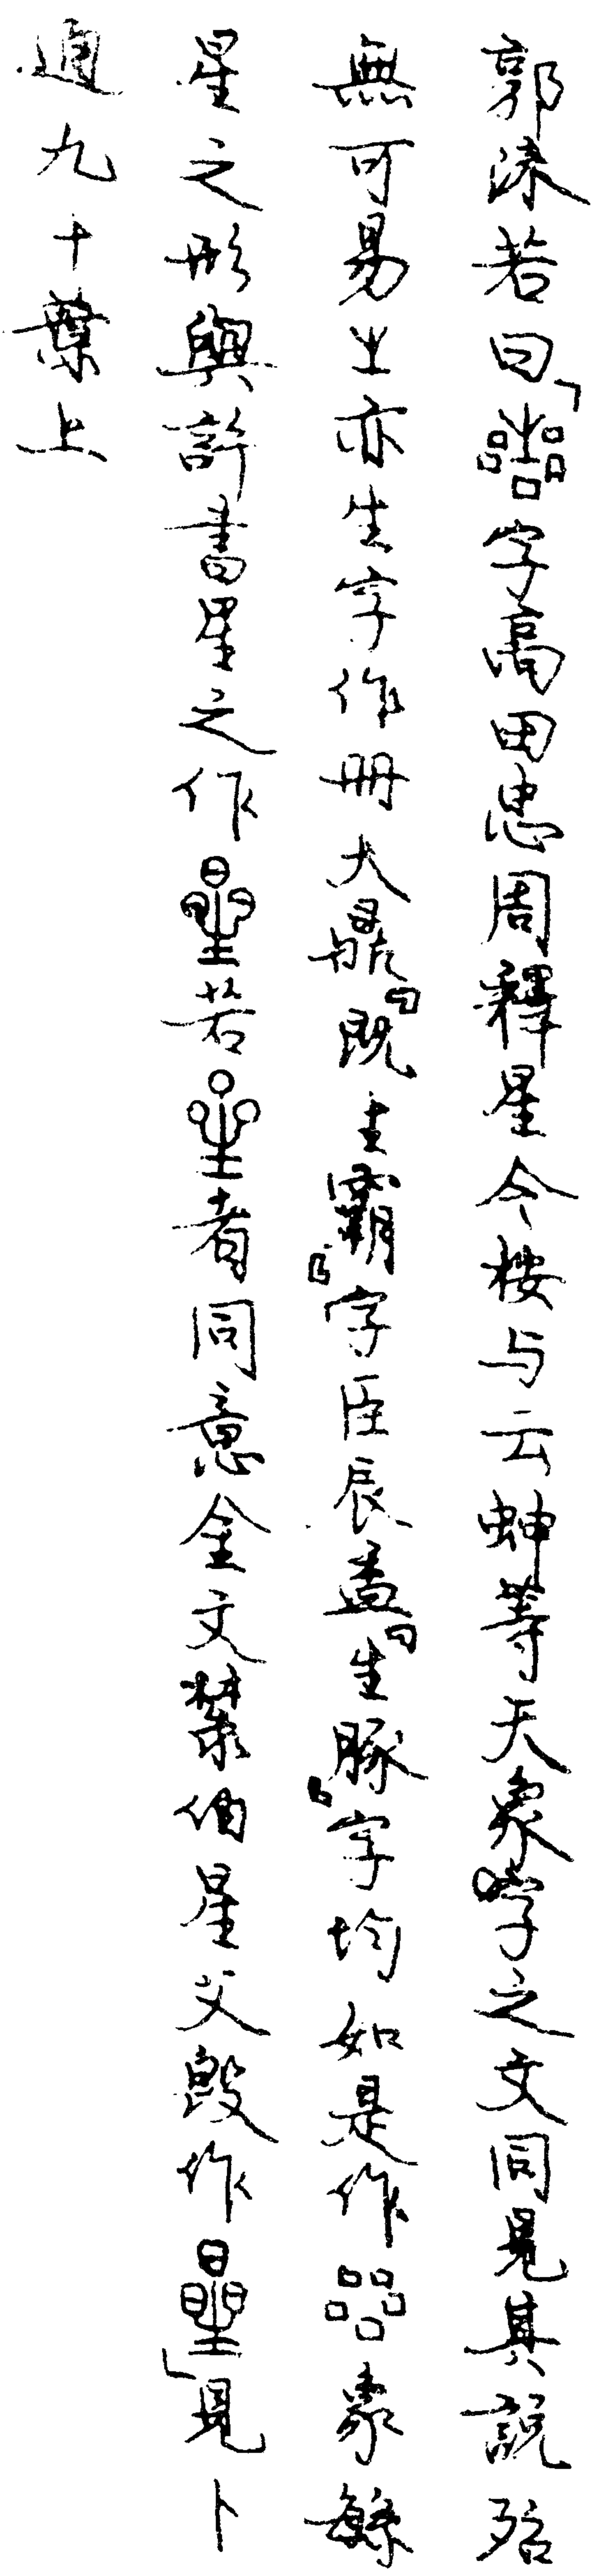 郭沫若曰「字高田忠周釋星今按与云虹等天象字之文同見其說殆
無可易㞢亦生字作册大鼎「既生霸」字臣辰盉「生豚」字均如是作象繇
星之形與許書星之作若者同意金文麓伯星父𣪘作」見卜
通九十葉上